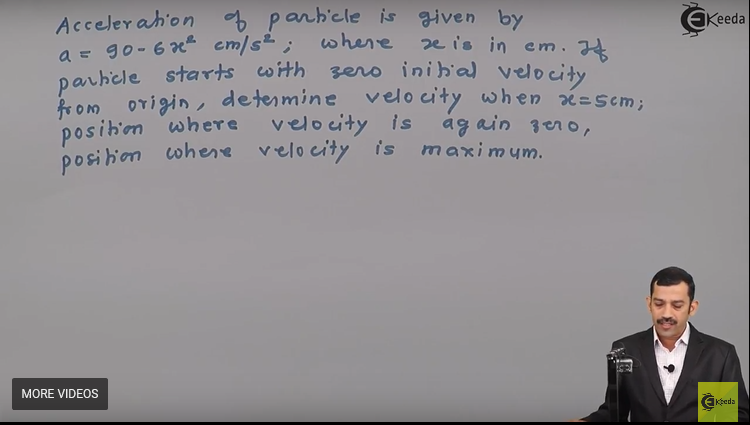 Acceleration of particle is given by
a = 90-6x² cm/s²; where x is in cm. If
particle starts with zero initial velocity
from origin, determine velocity when x=5cm;
position where velocity is again zero,
position where velocity is maximum.
Ekeeda
MORE VIDEOS
Ekeeda